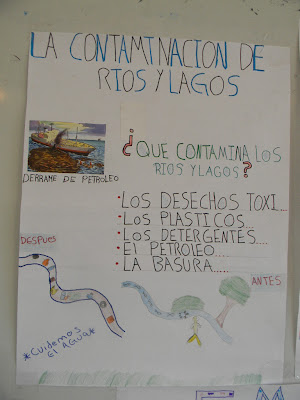 LA CONTAMINACION DE
RIOS Y LAGOS
¿QUE CONTAMINA LOS
RIOS Y LAGOS?
DERRAME DE PETROLEO
• LOS DESECHOS TOXI...
• LOS PLASTICOS...
• LOS DETERGENTES...
• El PETROLEO...
• LA BASURA.....
DESPUES
ANTES
*Cuidemos
El AGUA*